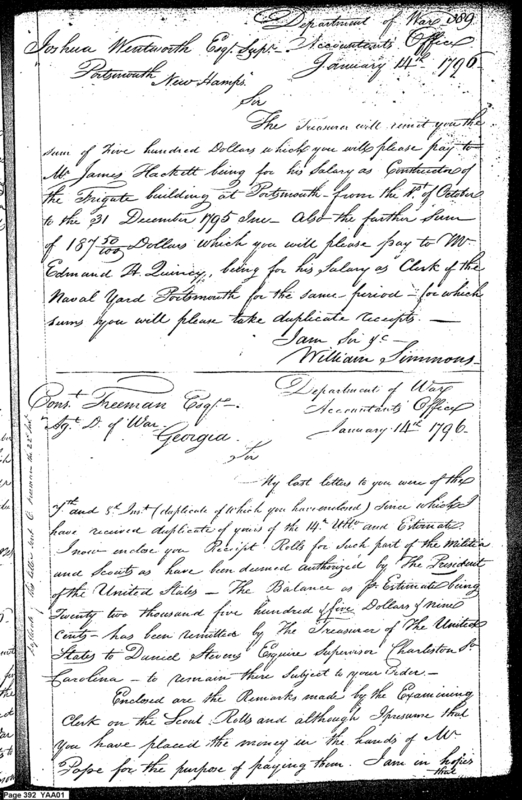 Department of War 389
Joshua Wentworth Esqr. Supr. Accountants Office
Portsmouth January 14th 1796
New Hamps.
Sir
The Treasurer will remit you the
sum of Five hundred Dollars which you will please pay to
Mr James Hackett being for his Salary as Constructor of
the Frigate building at Portsmouth from the 1st of October
to the 31 December 1795 Inc- Also the further Sum
of 187 50/100 Dollars which you will please pay to Mr
Edmund H. Quincy, being for his Salary as Clerk of the
Naval Yard Portsmouth for the same period - for which
sums you will please take duplicate receipts. -
I am Sir &c -
William Simmons
Const. Freeman Esqr. Department of War
Agt. D. of War Accountants Office
Georgia January 14th 1796.
Sir
My last letters to you were of the
7th and 8th Inst (duplicate of which you have enclosed) since which I
have received duplicate of yours of the 14th Ulto and Estimate.
I now enclose you Receipt Rolls for Such part of the Militia
and Scouts as have been deemed authorized by The President
of the United States - The Balance as Pr Estimate being
Twenty two thousand five hundred & five Dollars & nine
Cents - has been remitted by The Treasurer of The United
States to Daniel Stevens Esquire Supervisor Charleston So
Carolina - to remain there Subject to your Order. -
Enclosed are the Remarks made by the Examining
Clerk on the Scout Rolls and although I presume that
You have placed the money in the hands of Mr
Pope for the purpose of paying them. I am in hopes
that
of this letter sent C. Freeman the 22d Inst.
Page 392 YAA01